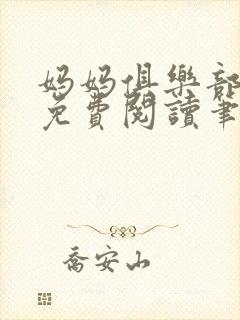 妈妈俱樂部
免費閱讀筆
喬安山